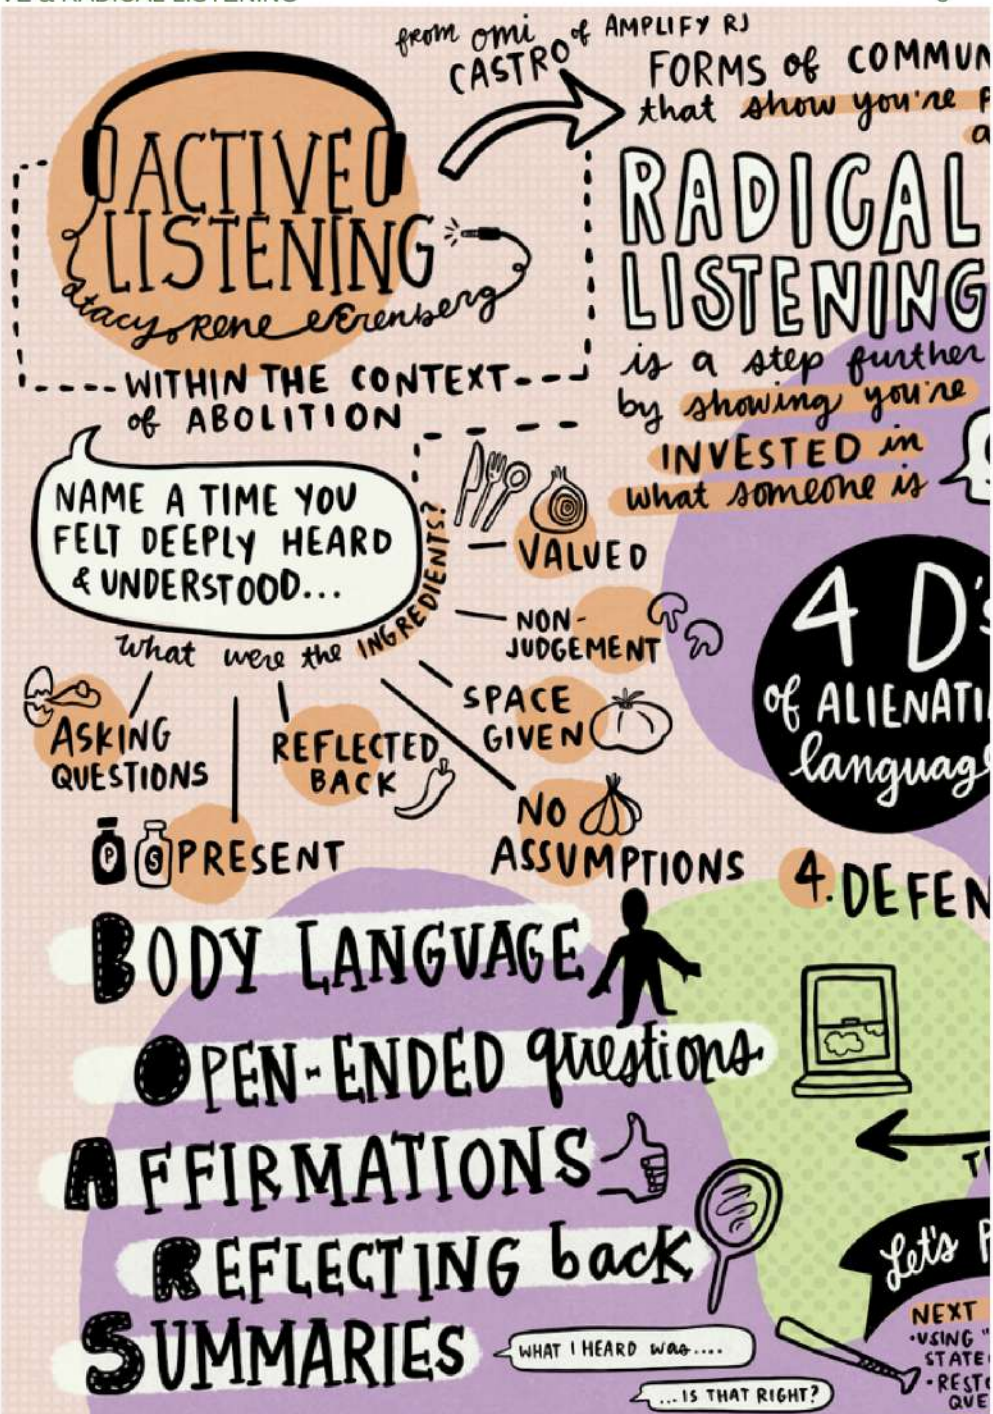 & RADICAL LISTENING
from omi of AMPLIFY RJ
CASTRO
ACTIVE
LISTENING
stacy rene erenberg
WITHIN THE CONTEXT
of ABOLITION
FORMS of
that show you're
RADICAL
LISTENING
is a step further
by showing you're
INVESTED in
what someone is
NAME A TIME YOU
FELT DEEPLY HEARD
& UNDERSTOOD...
what were the INGREDIENTS?
VALUED
NON-
JUDGEMENT
SPACE
GIVEN
NO
ASSUMPTIONS
REFLECTED
BACK
ASKING
QUESTIONS
P
S
PRESENT
4 D's
of
language
4.
BODY LANGUAGE
OPEN-ENDED questions
AFFIRMATIONS
REFLECTING back
SUMMARIES
WHAT I HEARD was....
...IS THAT RIGHT?
Let's
NEXT
•USING "